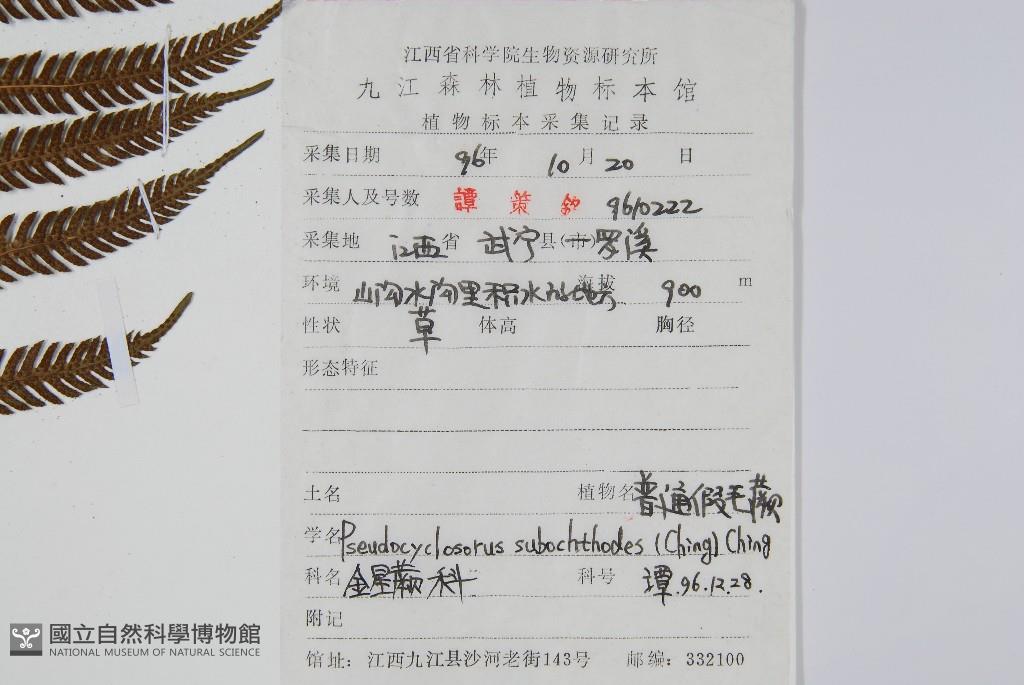 江西省科学院生物资源研究所
九江森林植物标本馆
植物标本采集记录
采集日期 96年 10月20 日
采集人及号数 譚策銘 9610222
采集地 江西省 武宁县(市)罗溪
环境 山沟水沟里积水的地方 海拔 900 m
性状 草 体高 胸径
形态特征
土名 植物名 普通假毛蕨
学名 Pseudocyclosorus subochthodes (Ching) Ching
科名 金星蕨科 科号 譚.96.12.28.
附记
馆址：江西九江县沙河老街143号 邮编：332100
國立自然科學博物館
NATIONAL MUSEUM OF NATURAL SCIENCE